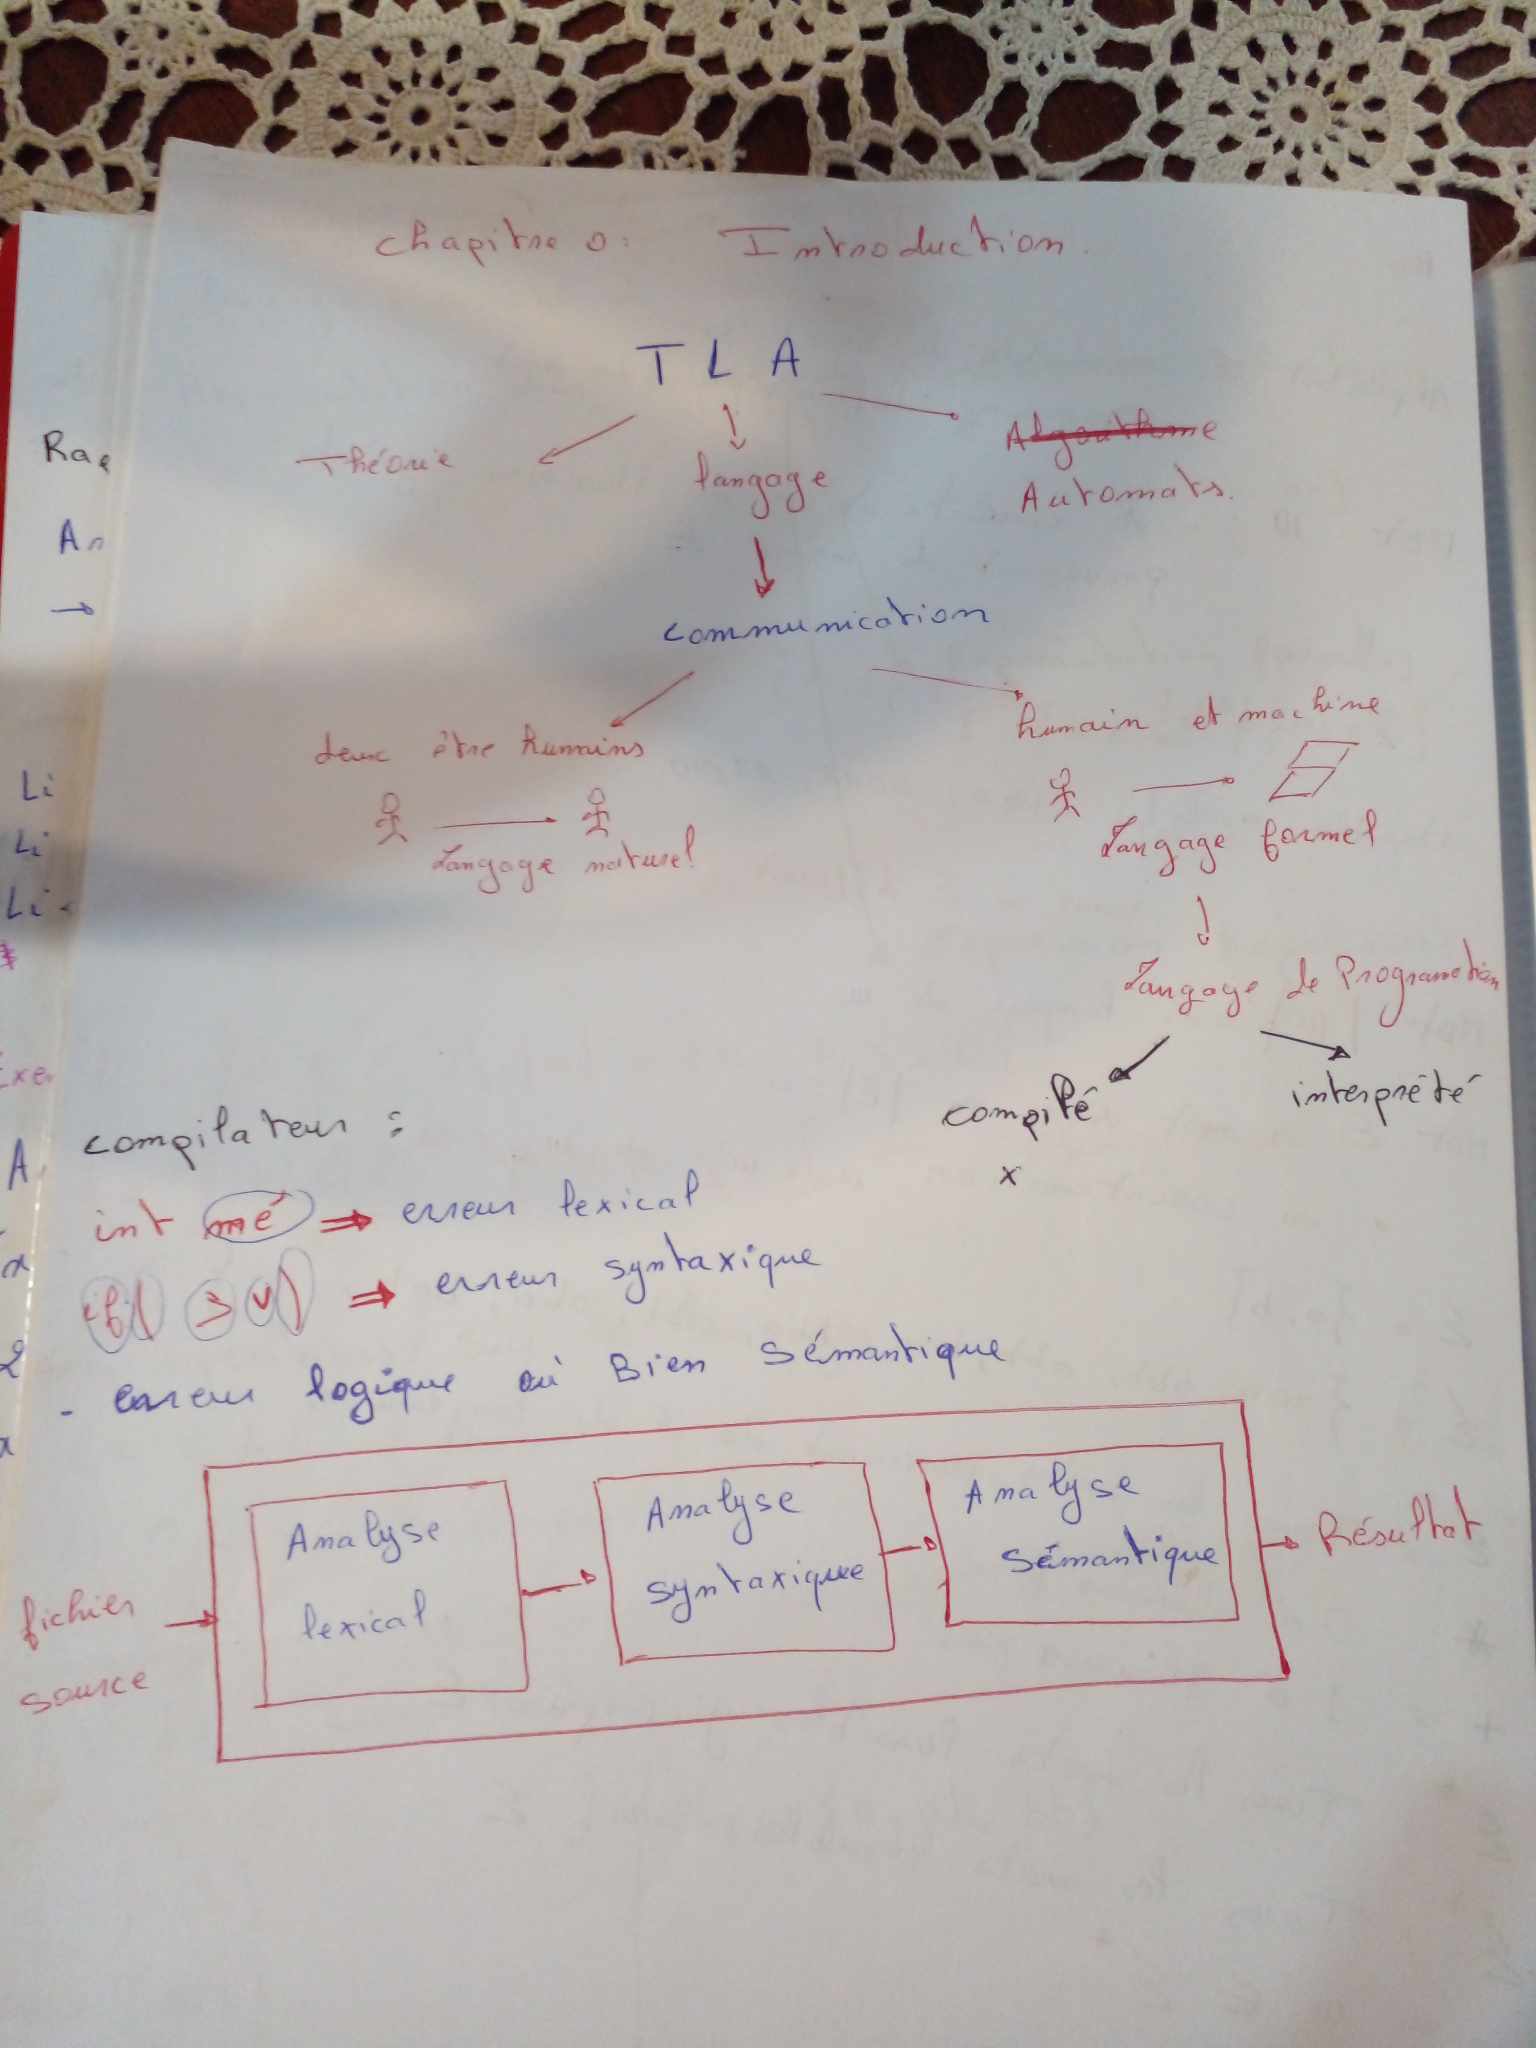 Chapitre 0: Introduction.
T L A
Théorie
langage
Algorithme
Automats.
communication
deux être humains
humain et machine
Langage naturel
Langage formel
Langage de Programation
compilé
interprété
x
compilateur :
int mé ⇒ erreur lexical
if( > v) ⇒ erreur syntaxique
- erreur logique où Bien Sémantique
fichier
source
Analyse
lexical
Analyse
syntaxique
Analyse
Sémantique
Résultat
Li
Li
Li
Exe
A